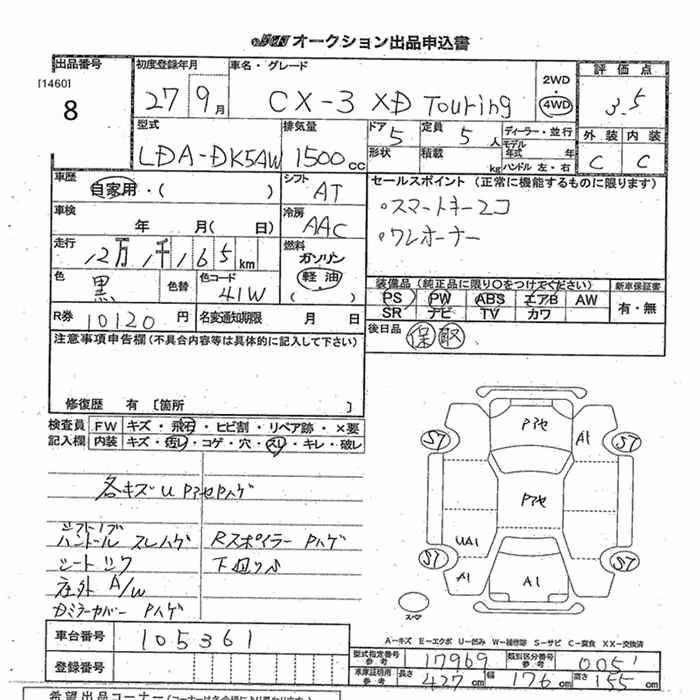 オークション出品申込書
出品番号 初度登録年月 車名・グレード 2WD 4WD 評価点
[1460]
8
27年9月 CX-3 XD Touring 3.5
型式 排気量 ドア 5 定員 5人 ディーラー・並行 外装 内装
LDA-DK5AW 1500cc 形状 積載 kg モデル年式 年 ハンドル 左・右 C C
車歴 自家用・( ) シフト AT セールスポイント (正常に機能するものに限ります)
車検 年 月( 日) 冷房 AAC ・スマートキー2コ
・ワンオーナー
走行 12万1千165km 燃料 ガソリン 軽油 ( )
色 黒 色替 色コード 41W
装備品 (純正品に限り○をつけてください) 新車保証書
PS PW ABS エアB AW 有・無
SR ナビ TV カワ
R券 10120円 名変通知期限 月 日 後日品 保 取
注意事項申告欄 (不具合内容等は具体的に記入して下さい)
修復歴 有 [箇所 ]
検査員 FW キズ・飛石・ヒビ割・リペア跡・×要
記入欄 内装 キズ・汚レ・コゲ・穴・スレ・キレ・破レ
各キズU Pアセ Pハゲ
シフトノブ
ハンドル スレハゲ Rスポイラー Pハゲ
下廻りサ
社外 A/W
Dミラーカバー Pハゲ
Pアセ
ST A1 ST
Pアセ
UA1
ST ST
A1 A1
スペア
A-キズ E-エクボ U-凹み W-補修跡 S-サビ C-腐食 XX-交換済
車台番号 105361
型式指定番号 参考 17969 類別区分番号 参考 0051
登録番号
車庫証明用 参考 長さ 427cm 幅 176cm 高さ 155cm
希望出品コーナー